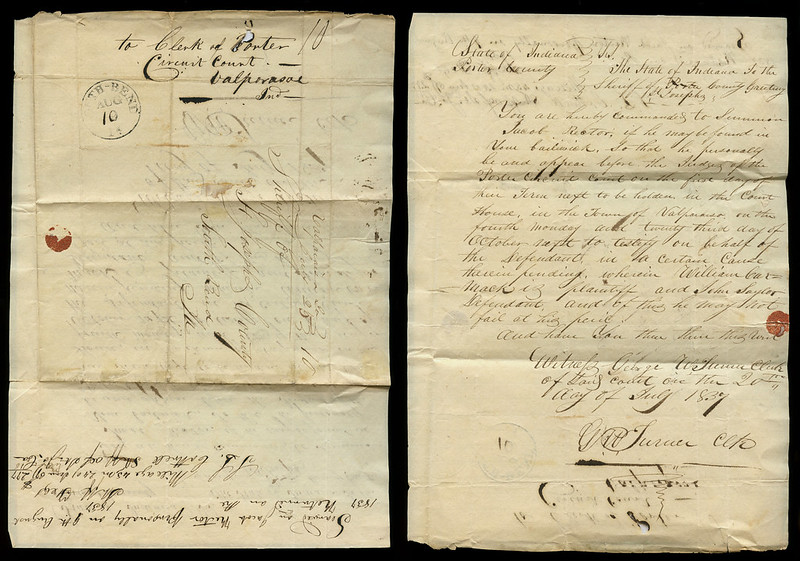 to Clerk of Porter 10
Circuit Court —
Valporasoe
Ind —
TH-BEND
AUG
10
Ia
Valparaiso Ia
July 25 10
Sheriff of
St Joseph County
South Bend
Ia
Served on Jacob Rector personally on 9th August
1837 Returned on the
1837
Sheff of St Jos. Co Ia
State of Indiana
Porter County The State of Indiana To the
Sheriff of Porter County Greeting
St Joseph
You are hereby Commanded to Summon
Jacob Rector, if he may be found in
Your bailiwick, So that he personally
be and appear before the Judges of the
Porter Circuit Court on the first day of
their Term next to be holden in the Court
House, in the Town of Valparaiso, on the
fourth monday and twenty third day of
October next to testify on behalf of
the Defendant, in a certain Cause
therein pending, wherein William Car-
mack is plaintiff and John Taylor
Defendant and of this he may not
fail at his peril.
And have You then there this Writ
Witness George W Turner Clerk
of Said Court on the 20th
day of July 1837
G W Turner Clk